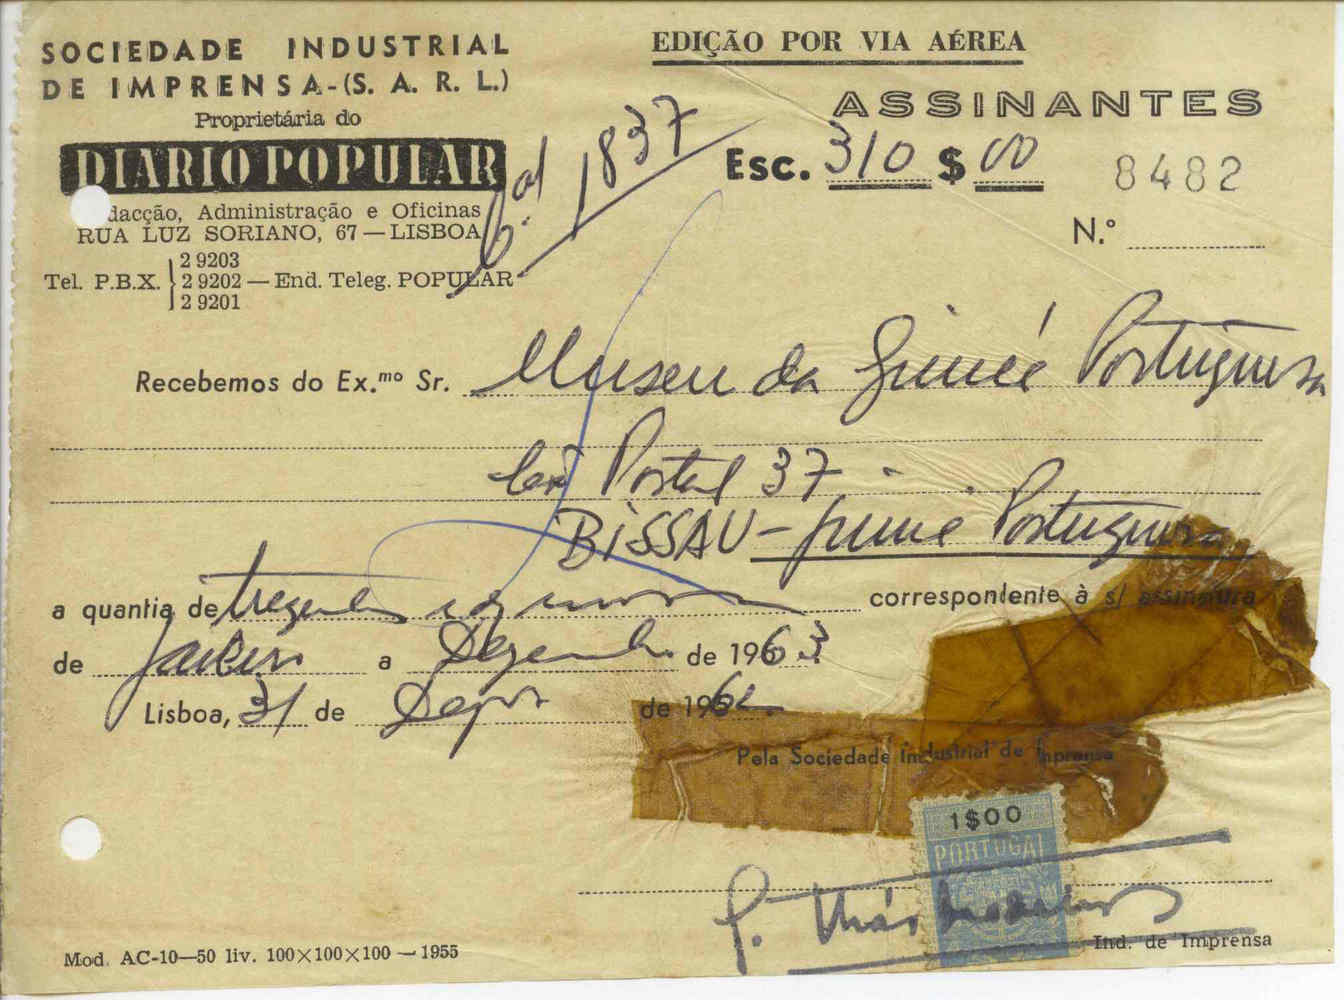 SOCIEDADE INDUSTRIAL
DE IMPRENSA-(S. A. R. L.)
Proprietária do
DIARIO POPULAR
dacção, Administração e Oficinas
RUA LUZ SORIANO, 67 — LISBOA
Tel. P.B.X. 2 9203
2 9202 — End. Teleg. POPULAR
2 9201
1837
EDIÇÃO POR VIA AÉREA
ASSINANTES
Esc. 310 $ 00
8482
N.º
Recebemos do Ex.mo Sr. Museu da Guiné Portuguesa
Postal 37
BISSAU - Guiné Portuguesa
a quantia de trezentos e dez escudos correspondente à s/ assinatura
de Janeiro a Dezembro de 1963
Lisboa, 31 de Dezbr de 1962
Pela Sociedade Industrial de Imprensa
1$00
PORTUGAL
Ind. de Imprensa
Mod. AC-10—50 liv. 100×100×100 — 1955